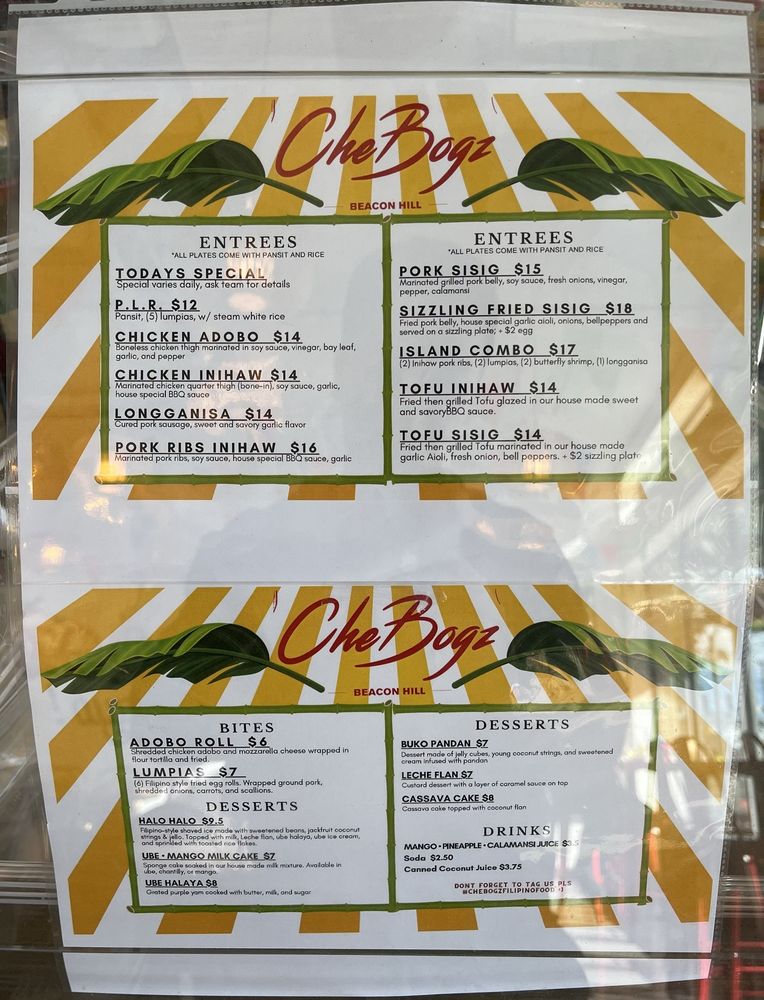 CheBogz
BEACON HILL
ENTREES
*ALL PLATES COME WITH PANSIT AND RICE
TODAYS SPECIAL
Special varies daily, ask team for details
P.L.R. $12
Pansit, (5) lumpias, w/ steam white rice
CHICKEN ADOBO $14
Boneless chicken thigh marinated in soy sauce, vinegar, bay leaf,
garlic, and pepper
CHICKEN INIHAW $14
Marinated chicken quarter thigh (bone-in), soy sauce, garlic,
house special BBQ sauce
LONGGANISA $14
Cured pork sausage, sweet and savory garlic flavor
PORK RIBS INIHAW $16
Marinated pork ribs, soy sauce, house special BBQ sauce, garlic
ENTREES
*ALL PLATES COME WITH PANSIT AND RICE
PORK SISIG $15
Marinated grilled pork belly, soy sauce, fresh onions, vinegar,
pepper, calamansi
SIZZLING FRIED SISIG $18
Fried pork belly, house special garlic aioli, onions, bellpeppers and
served on a sizzling plate; + $2 egg
ISLAND COMBO $17
(2) Inihaw pork ribs, (2) lumpias, (2) butterfly shrimp, (1) longganisa
TOFU INIHAW $14
Fried then grilled Tofu glazed in our house made sweet
and savoryBBQ sauce.
TOFU SISIG $14
Fried then grilled Tofu marinated in our house made
garlic Aioli, fresh onion, bell peppers. + $2 sizzling plate
CheBogz
BEACON HILL
BITES
ADOBO ROLL $6
Shredded chicken adobo and mozzarella cheese wrapped in
flour tortilla and fried.
LUMPIAS $7
(6) Filipino style fried egg rolls. Wrapped ground pork,
shredded onions, carrots, and scallions.
DESSERTS
HALO HALO $9.5
Filipino-style shaved ice made with sweetened beans, jackfruit coconut
strings & jello. Topped with milk, Leche flan, ube halaya, ube ice cream,
and sprinkled with toasted rice flakes.
UBE • MANGO MILK CAKE $7
Sponge cake soaked in our house made milk mixture. Available in
ube, chantilly, or mango.
UBE HALAYA $8
Grated purple yam cooked with butter, milk, and sugar
DESSERTS
BUKO PANDAN $7
Dessert made of jelly cubes, young coconut strings, and sweetened
cream infused with pandan
LECHE FLAN $7
Custard dessert with a layer of caramel sauce on top
CASSAVA CAKE $8
Cassava cake topped with coconut flan
DRINKS
MANGO • PINEAPPLE • CALAMANSI JUICE $3.5
Soda $2.50
Canned Coconut Juice $3.75
DONT FORGET TO TAG US PLS
#CHEBOGZFILIPINOFOOD :)